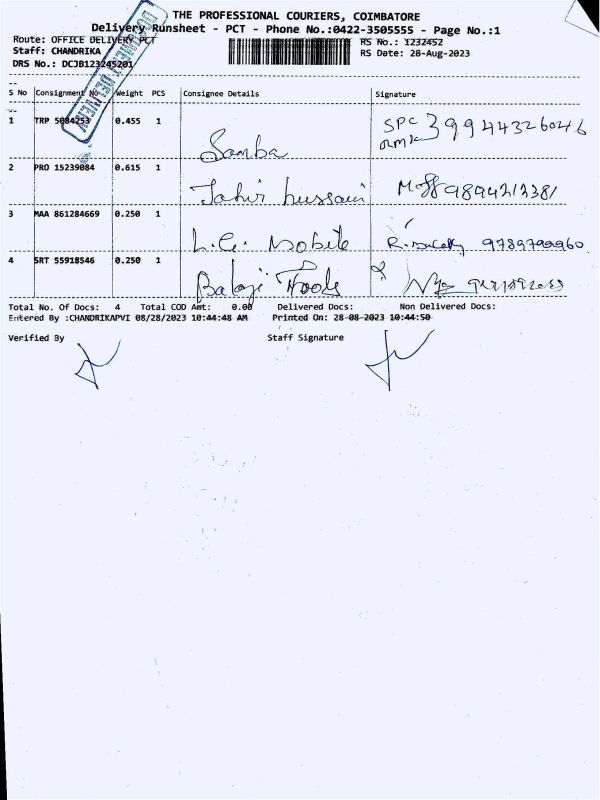 THE PROFESSIONAL COURIERS, COIMBATORE
Delivery Runsheet - PCT - Phone No.:0422-3505555 - Page No.:1
Route: OFFICE DELIVERY PCT
RS No.: 1232452
Staff: CHANDRIKA
RS Date: 28-Aug-2023
DRS No.: DCJB123245201
S No Consignment No Weight PCS Consignee Details Signature
1 TRP 5084253 0.455 1 Samba SPC 39944326046
2 PRO 15239084 0.615 1 Tahir hussain
3 MAA 861284669 0.250 1 L.G. Mobile 9789799960
4 SRT 55918546 0.250 1 Balaji Foods
Total No. Of Docs: 4 Total COD Amt: 0.00 Delivered Docs: Non Delivered Docs:
Entered By :CHANDRIKAPVI 08/28/2023 10:44:48 AM Printed On: 28-08-2023 10:44:50
Verified By Staff Signature